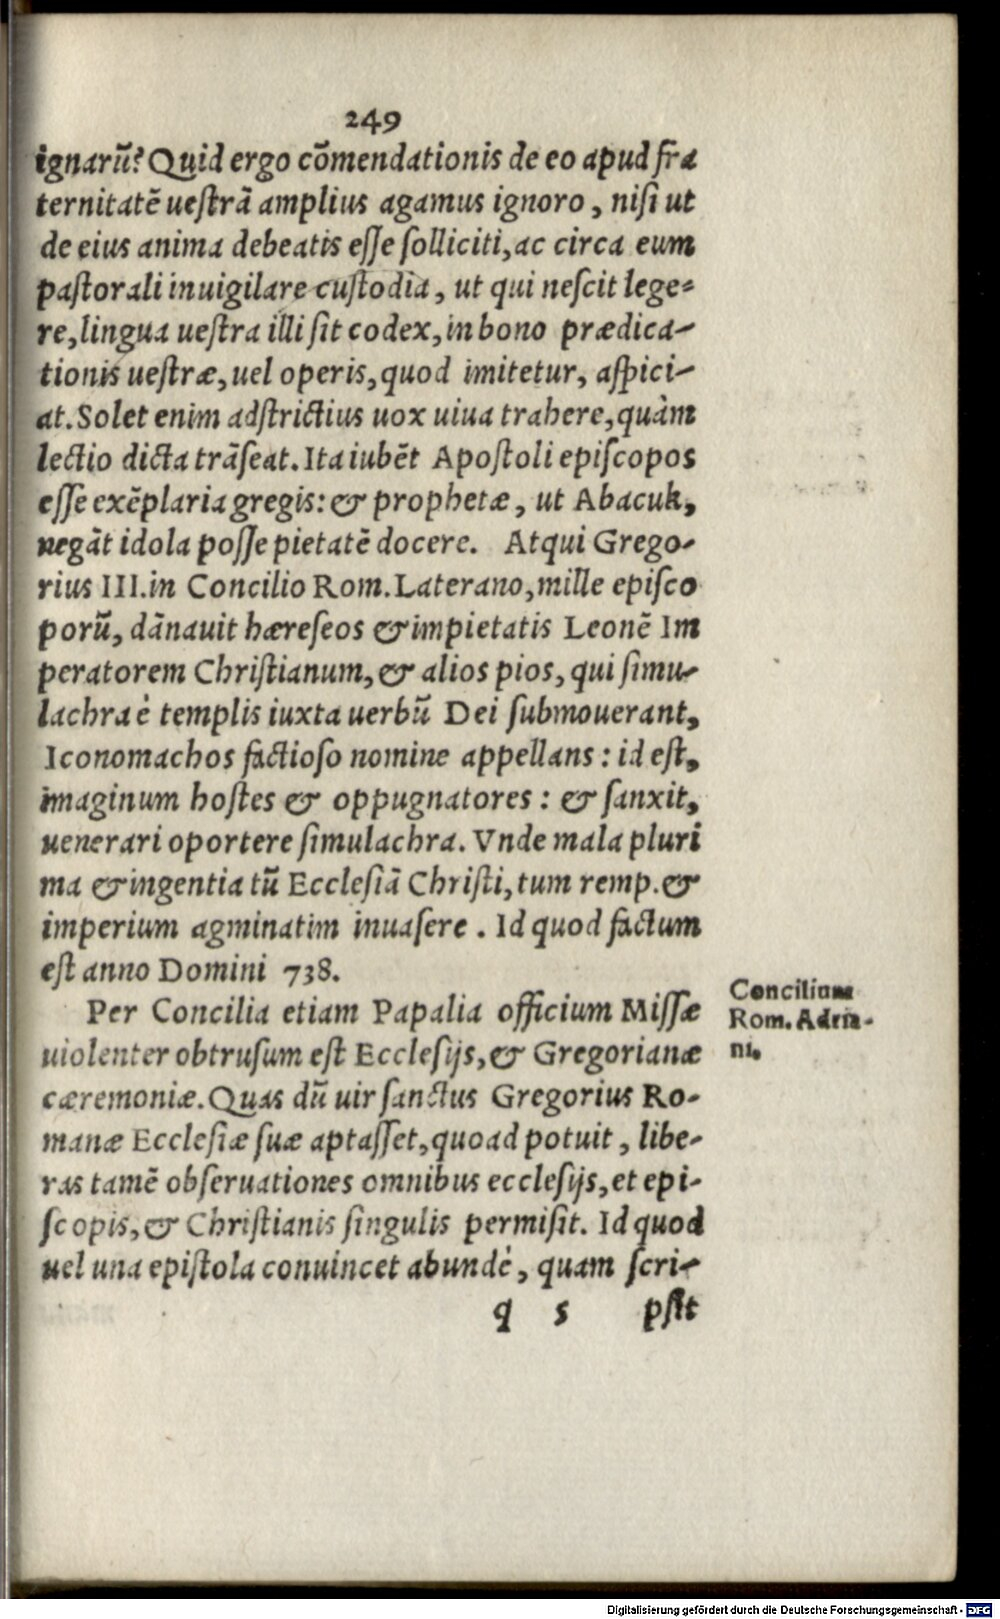 249
ignarū? Quid ergo cōmendationis de eo apud fra
ternitatē uestrā amplius agamus ignoro, nisi ut
de eius anima debeatis esse solliciti, ac circa eum
pastorali inuigilare custodia, ut qui nescit lege=
re, lingua uestra illi sit codex, in bono prædica-
tionis uestræ, uel operis, quod imitetur, aspici-
at. Solet enim adstrictius uox uiua trahere, quàm
lectio dicta trāseat. Ita iubēt Apostoli episcopos
esse exēplaria gregis: & prophetæ, ut Abacuk,
negāt idola posse pietatē docere. Atqui Grego-
rius III. in Concilio Rom. Laterano, mille episco
porū, dānauit hæreseos & impietatis Leonē Im
peratorem Christianum, & alios pios, qui simu-
lachra è templis iuxta uerbū Dei submouerant,
Iconomachos factioso nomine appellans: id est,
imaginum hostes & oppugnatores: & sanxit,
uenerari oportere simulachra. Vnde mala pluri
ma & ingentia tū Ecclesiā Christi, tum remp. &
imperium agminatim inuasere. Id quod factum
est anno Domini 738.
Per Concilia etiam Papalia officium Missæ
uiolenter obtrusum est Ecclesijs, & Gregorianæ
cæremoniæ. Quas dū uir sanctus Gregorius Ro-
manæ Ecclesiæ suæ aptasset, quoad potuit, libe-
ras tamē obseruationes omnibus ecclesijs, et epi-
scopis, & Christianis singulis permisit. Id quod
uel una epistola conuincet abundè, quam scri-
q 5 psit
Concilium
Rom. Adria-
ni.
Digitalisierung gefördert durch die Deutsche Forschungsgemeinschaft - DFG